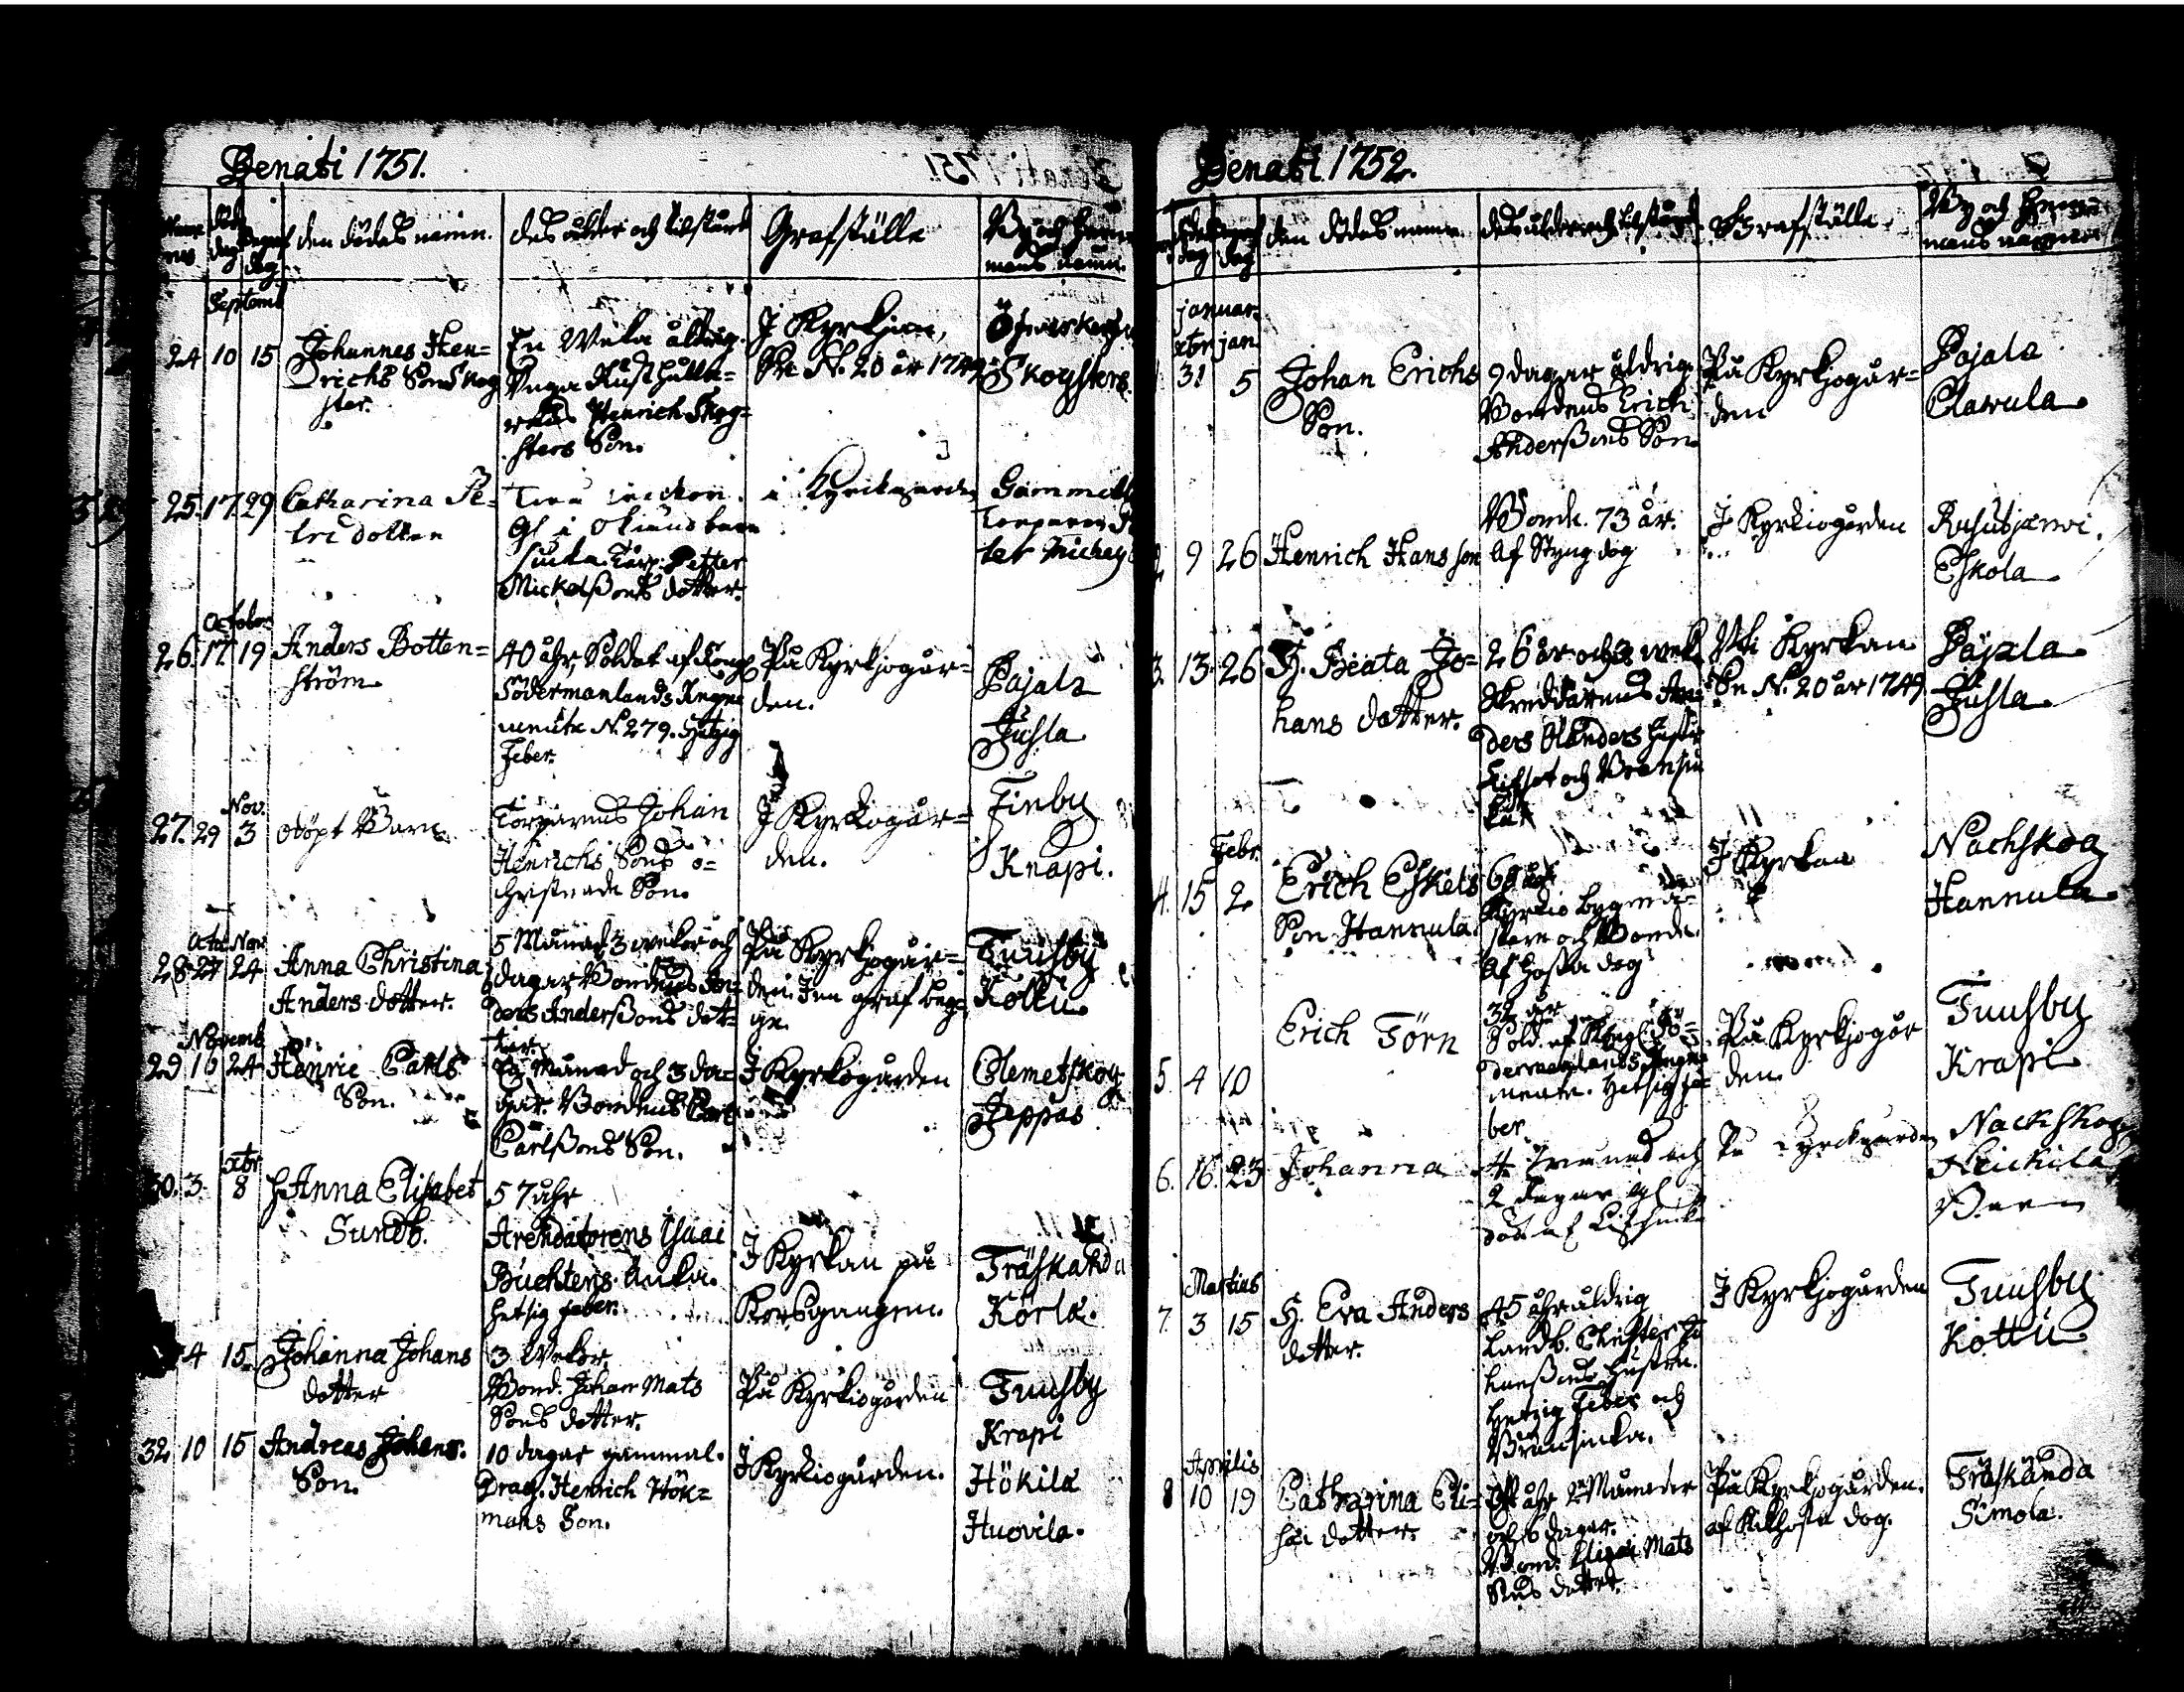 Denati 1751.
den dödas namn.
des ålder och tilstånd
Grafställe
By och Hem-
mans namn.
Septemb
24 10 15 Johannes Hen-
richs Son Skog
ster.
En Weka åldrig.
Henrich Skog-
sters Son.
I Kyrkjan,
N. 20 år 1749
Skogsters.
25. 17. 29 Catharina Pe-
tri dotter
Petter
Mickelßons dotter.
i Kyrckgården
October
26. 17. 19 Anders Botten-
ström
40 åhr Soldat af Kongl
Södermanlands Rege
mente N. 279. Hetzig
Feber.
På Kyrkjogår-
den.
Pajala
Juhla
Nov.
27. 29 3 odöpt Barn
Torparens Johan
Henrichs Sons o-
christnade Son.
I Kyrkogår-
den.
Finby
Knapi.
Oct. Nov
28 27 24 Anna Christina
Anders dotter.
5 Månad 3 wekor och
dagar Bondens An-
ders Anderßons dot-
ter.
På Kyrkjogår-
den.
Tuusby
Kottu
Novemb
29 16 24 Henric Carls
Son.
Månad och 3 da-
gar. Bondens Carl
Carlßons Son.
I Kyrkogården
Clemetskog
Jeppas
xbr
30. 3. 8 H. Anna Elisabet
Sundb.
57 åhr
Arendatorens Isaac
Büchters Enka.
hetsig feber.
I Kyrkan på
Korsgangen.
Träskända
Körla.
4 15 Johanna Johans
dotter
3 Wekor.
Bond. Johan Mats
Sons dotter.
På Kyrkiogården
Tuusby
Krapi
32 10 15 Andreas Johans.
Son.
10 dagar gammal.
Drag. Henrich Hök-
mans Son.
I Kyrkiogården.
Hökila
Huovila.
Denati 1752.
den dödas namn
des ålder och tilstånd
Grafställe
By och Hem-
mans namn
Januar.
xbr jan
31 5 Johan Erichs
Son.
9 dagar åldrig.
Bondens Erich
Anderßons Son
På Kyrkjogår-
den
Pajala
Clawula
2 9 26 Henrich Hansson
Bonde. 73 år.
Af Styng dog
I Kyrkiogården
Rusutjärwi.
Eskola
3. 13. 26 H. Beata Jo-
hans dotter.
26 år och 3 wek.
Skreddarens An-
ders Olanders
Uti Kyrkan
N. 20 år 1749.
Pajala
Juhla
Febr.
4. 15 2 Erich Eskils
Son Hannula.
Kyrkio bygmä-
stare och Bonde.
Af Hosta dog
I Kyrkan
Nachskog
Hannula
5. 4 10 Erich Törn
32 år
Sold. af Kongl. Sö-
dermanlands Rege
mente. Hetsig fe-
ber.
På Kyrkjogår
den.
Tuusby
Krapi
6. 16. 23 Johanna
4 månad och
2 dagar
På Kyrckgården
Nackskog
Martius
7. 3 15 H. Eva Anders
dotter.
45 åhr åldrig
Landb. Christer Jo
hanßons Hustru.
Hetzig Feber och
Brånsiuka.
I Kyrkjogården
Tuusby
Kottu
Aprilis
8 10 19 Catharina Eli-
sæi dotter.
åhr 2 Månader
och 6 dagar.
Bond. Elisæi Mats
Sons dotter.
På Kyrkjogården.
af Kikhosta dog.
Träskända
Simola.